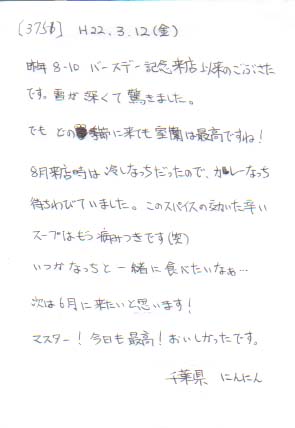 [3756] H22.3.12(金)
昨年8-10 バースデー記念来店以来のごぶさた
です。雪が深くて驚きました。
でも どの季節に来ても室蘭は最高ですね!
8月来店時は冷しなっちだったので、カレーなっち
待ちわびていました。このスパイスの効いた辛い
スープはもう病みつきです(笑)
いつかなっちと一緒に食べたいなぁ…
次は6月に来たいと思います!
マスター!今日も最高!おいしかったです。
千葉県 にんにん